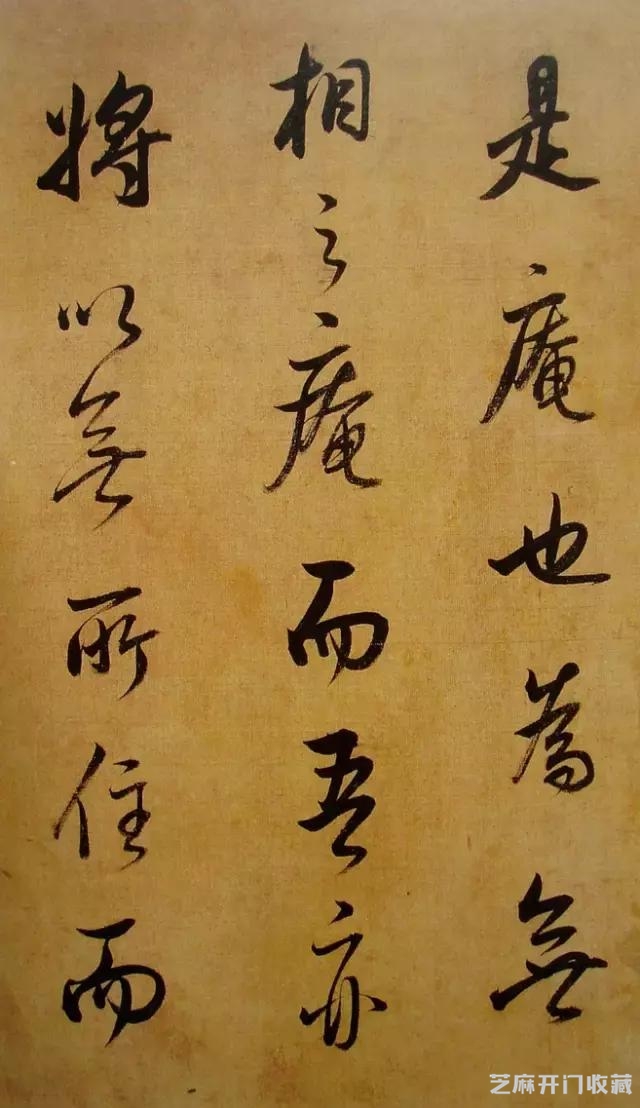 是庵也為無
相之庵而吾亦
將以無所住而
芝麻开门收藏